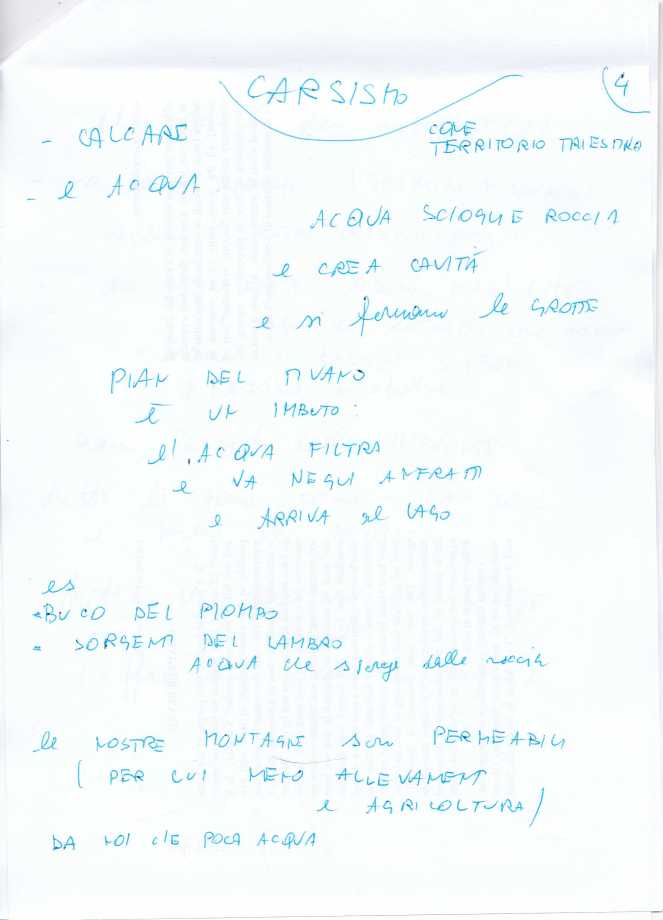 CARSISMO
4
- CALCARE
COME
TERRITORIO TRIESTINO
- e ACQUA
ACQUA SCIOGLIE ROCCIA
e CREA CAVITÀ
e si formano le GROTTE
PIAN DEL TIVANO
È UN IMBUTO:
l'ACQUA FILTRA
e VA NEGLI ANFRATTI
e ARRIVA al LAGO
es
- BUCO DEL PIOMBO
- SORGENTI DEL LAMBRO
ACQUA che sgorga dalle roccia
le NOSTRE MONTAGNE sono PERMEABILI
( PER CUI MENO ALLEVAMENTI
e AGRICOLTURA )
DA NOI C'È POCA ACQUA